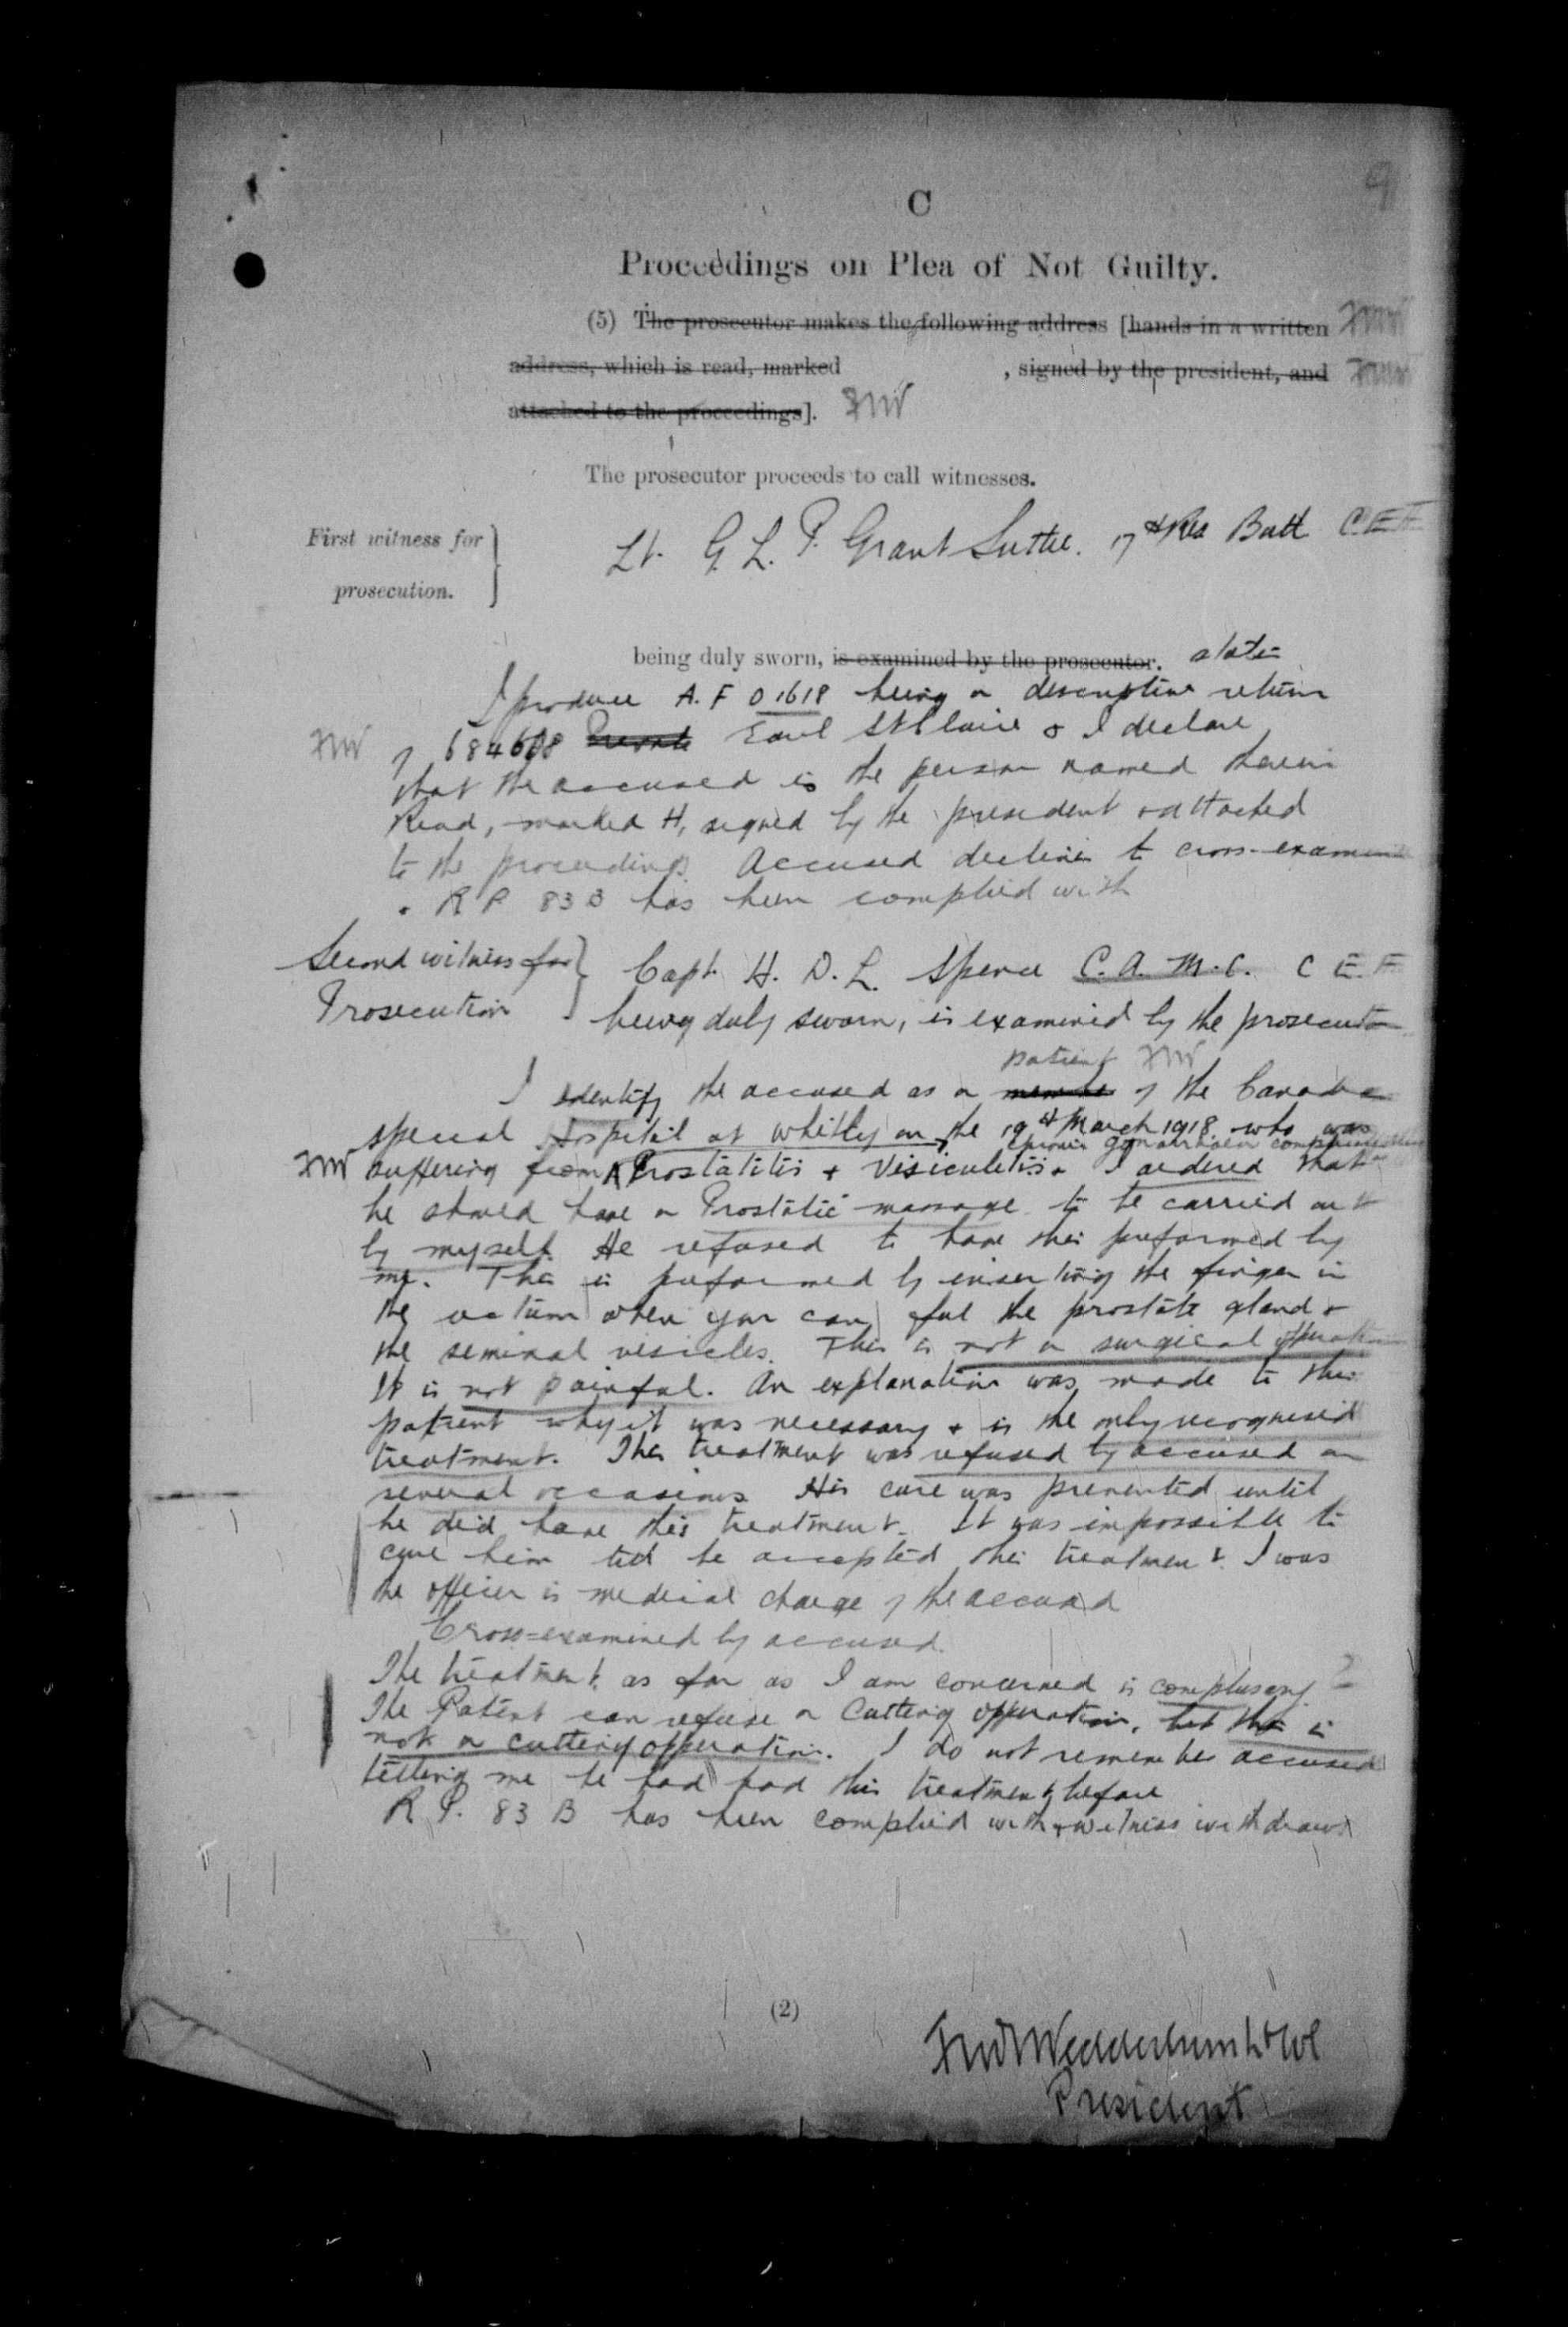 9
C
Proceedings on Plea of Not Guilty.
(5) The prosecutor makes the following address [hands in a written
address, which is read, marked , signed by the president, and
attached to the proceedings]. FMW
The prosecutor proceeds to call witnesses.
First witness for
prosecution.
Lt. G. L. P. Grant Suttie. 17th Res Batt C E F
being duly sworn, is examined by the prosecutor. states
I produce A. F O 1618 being a descriptive return
of Private Earl St Claire & I declare
that the accused is the person named therein
Read, marked H, signed by the president & attached
to the proceedings. Accused declines to cross-examine
. R P 83 B has been complied with
Second witness for
Prosecution
Capt. H. D. L. Spence C. A. M. C. C E F
being duly sworn, is examined by the prosecutor
patient
I identify the accused as a member of the Canadian
special Hospital at Whitley on the 19th March 1918 who was
chronic gonorrhoea
suffering from Prostatitis & Visiculitis. I ordered that
he should have a Prostatic massage to be carried out
by myself. He refused to have this preformed by
me. This is preformed by inserting the finger in
the rectum when you can feel the prostate gland &
the seminal vesicles. This is not a surgical
It is not painful. An explanation was made to this
patient why it was necessary & is the only recognised
treatment. This treatment was refused by accused on
several occasions His cure was prevented until
he did have this treatment. It was impossible to
cure him till he accepted this treatment. I was
the officer in medical charge of the accused
Cross-examined by accused.
The treatment as far as I am concerned is complusary
The Patient can refuse a Cutting opperation, but this is
not a cutting opperation. I do not remember accused
telling me he had had this treatment before
R P. 83 B has been complied with & witness withdraws
(2)
Wedderburn Lt Col
President